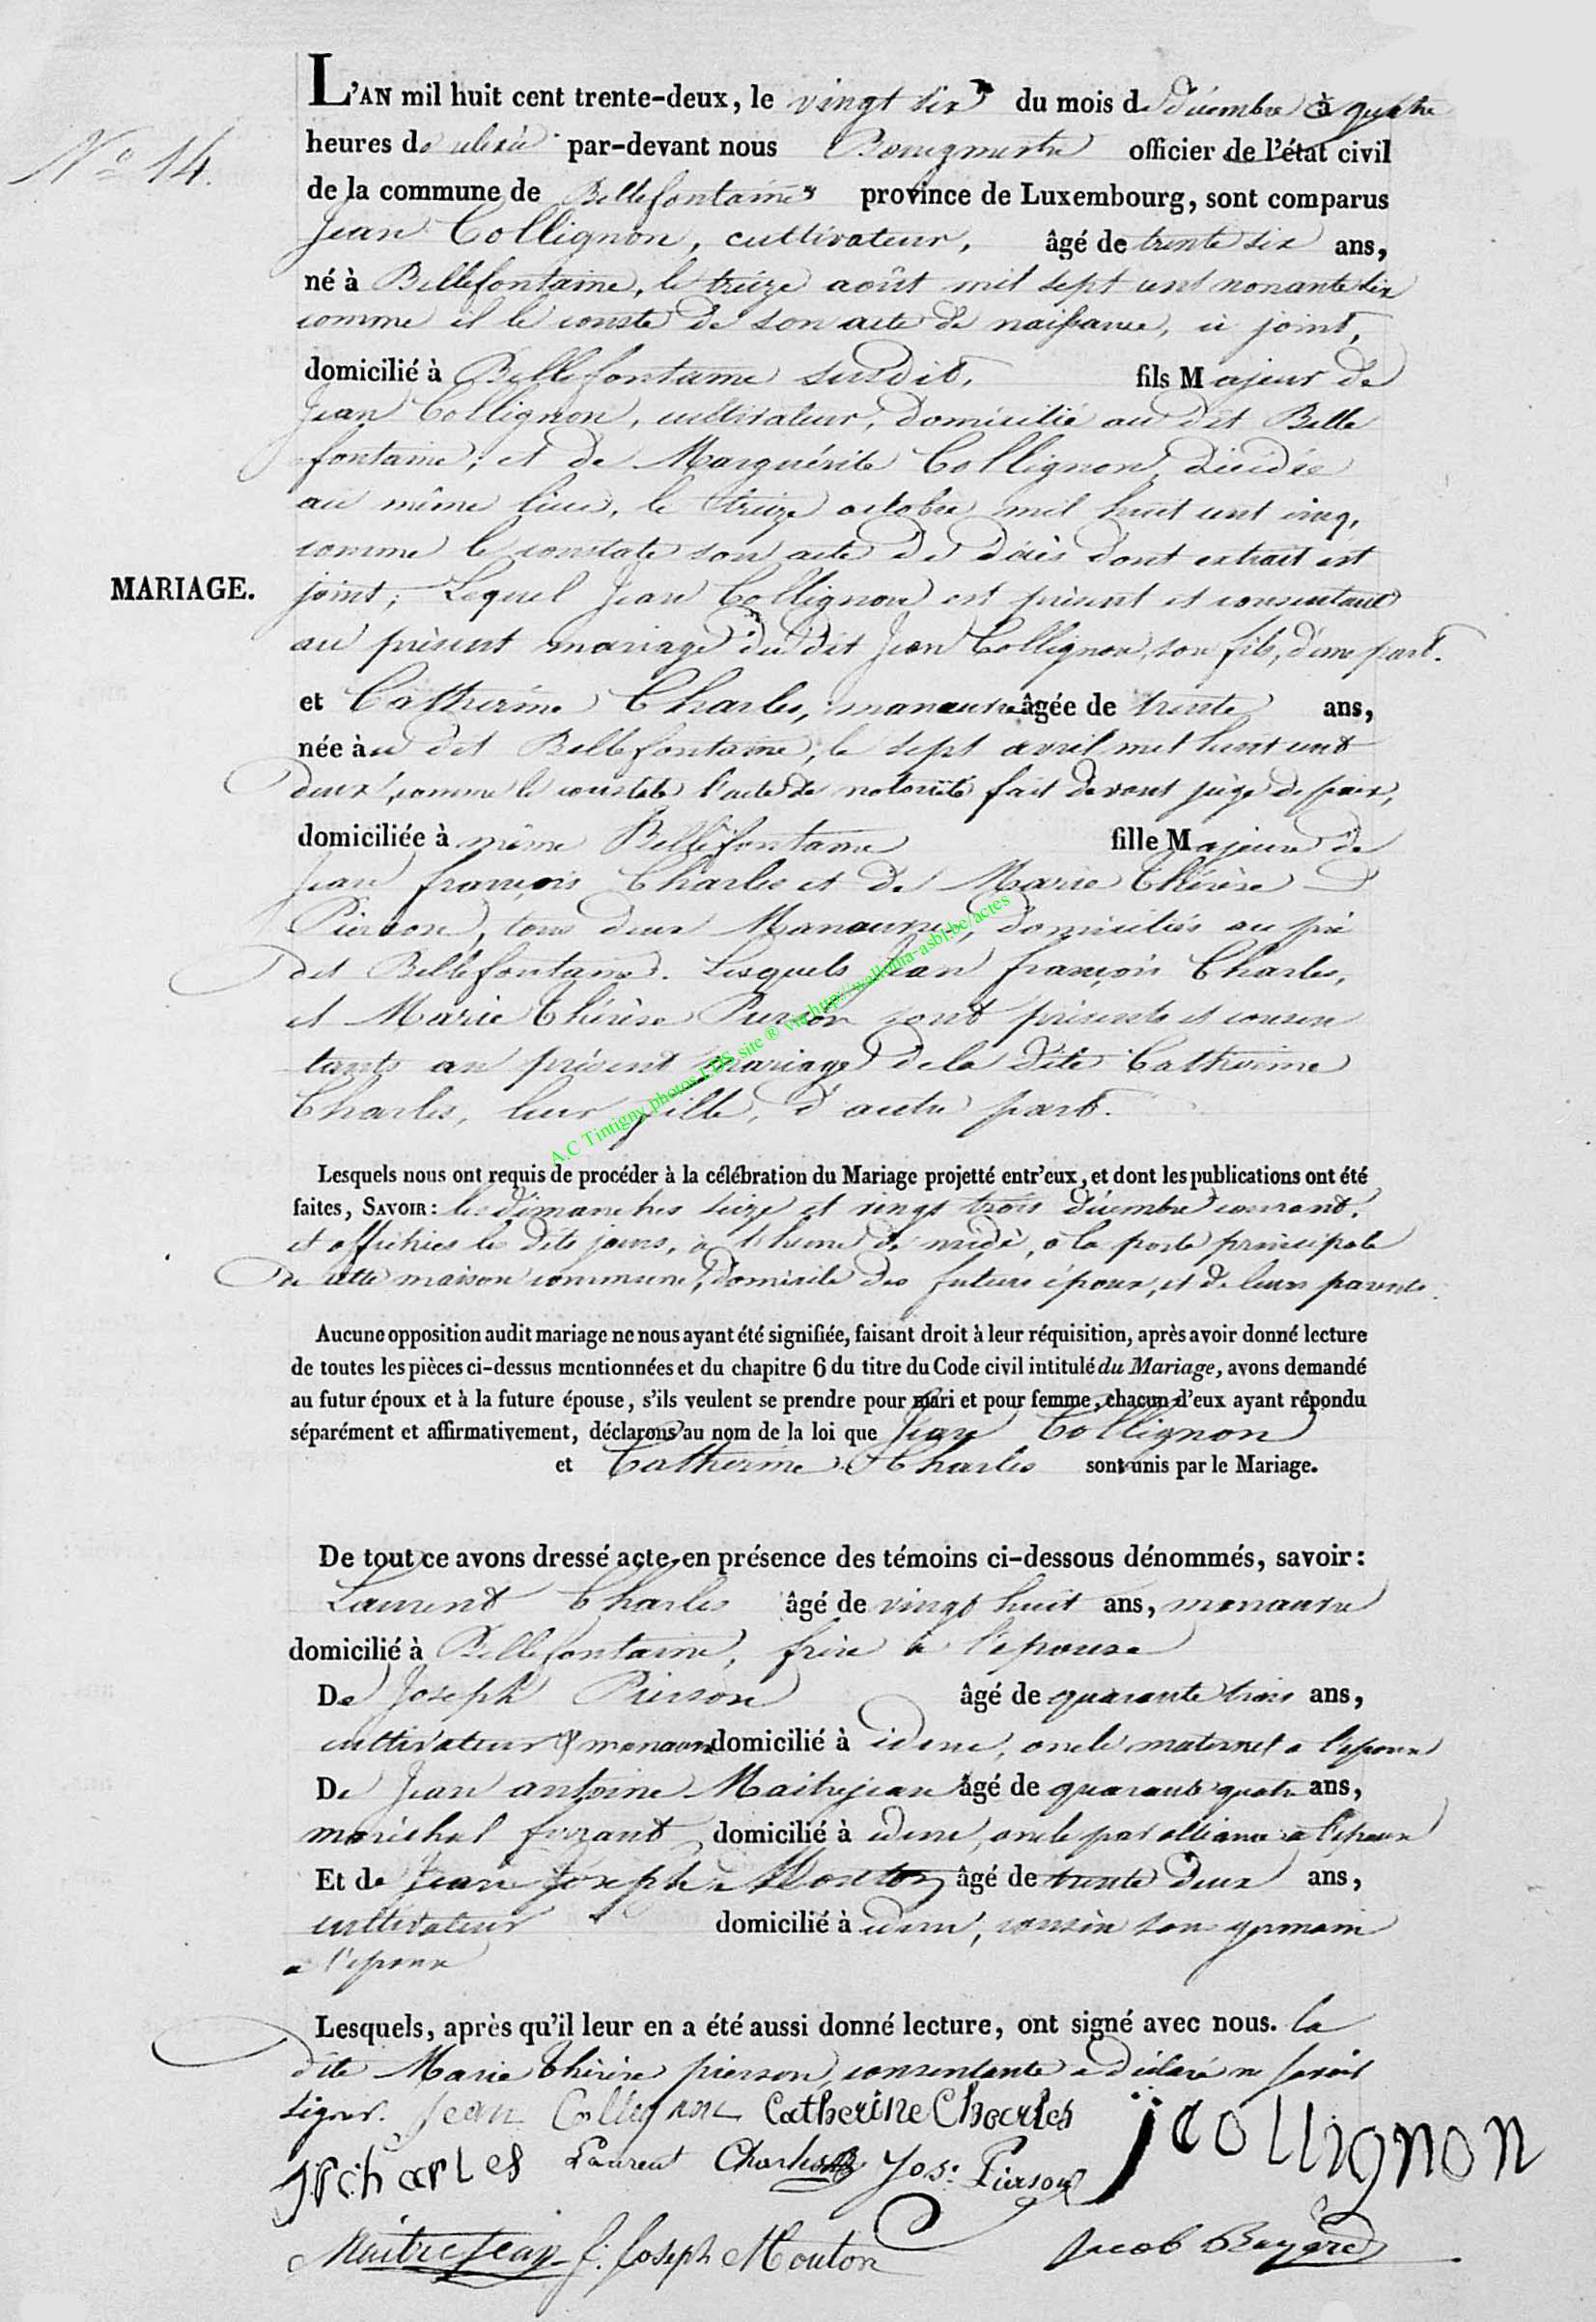 N.o 14.
L'AN mil huit cent trente-deux, le vingt six du mois de décembre à quatre
heures de relevée par-devant nous Bourgmestre officier de l'état civil
de la commune de Bellefontaine province de Luxembourg, sont comparus
Jean Collignon, cultivateur, âgé de trente six ans,
né à Bellefontaine, le treize août mil sept cent nonante six
comme il le conste de son acte de naissance, ci joint,
domicilié à Bellefontaine susdit, fils Majeur de
Jean Collignon, cultivateur, domicilié au dit Belle
fontaine; et de Marguérite Collignon décédée
au même lieu, le treize octobre mil huit cent cinq,
comme le constate son acte de décès dont extrait est
MARIAGE.
joint; Lequel Jean Collignon est présent et consentant
au présent mariage du dit Jean Collignon, son fils, d'une part.
et Catherine Charles, manœuvre âgée de trente ans,
née àu dit Bellefontaine, le sept avril mil huit cent
deux, comme le constate l'acte de notoriété fait devant juge de paix,
domiciliée à même Bellefontaine fille Majeure de
Jean françois Charles et de Marie Thérèse
Pierson, tous deux Manœuvres, domiciliés au pré
dit Bellefontaine. Lesquels Jean françois Charles,
et Marie Thérèse Pierson sont présents et consen
tants au présent mariage de la dite Catherine
Charles, leur fille, d'autre part.
A.C Tintigny photos LDS site ® via http://wallonia-asbl.be/actes
Lesquels nous ont requis de procéder à la célébration du Mariage projetté entr'eux, et dont les publications ont été
faites, SAVOIR: les dimanches seize et vingt trois décembre courant,
et affichies les dits jours, à l'heure de midi, à la porte principale
de cette maison commune, domicile des futurs époux, et de leurs parents.
Aucune opposition audit mariage ne nous ayant été signifiée, faisant droit à leur réquisition, après avoir donné lecture
de toutes les pièces ci-dessus mentionnées et du chapitre 6 du titre du Code civil intitulé du Mariage, avons demandé
au futur époux et à la future épouse, s'ils veulent se prendre pour mari et pour femme, chacun d'eux ayant répondu
séparément et affirmativement, déclarons au nom de la loi que Jean Collignon
et Catherine Charles sont unis par le Mariage.
De tout ce avons dressé acte en présence des témoins ci-dessous dénommés, savoir:
Laurent Charles âgé de vingt huit ans, manœuvre
domicilié à Bellefontaine, frère à l'épouse
De Joseph Pierson âgé de quarante trois ans,
cultivateur domicilié à idem, oncle maternel a l'épouse
De Jean antoine Maitrejean âgé de quarante quatre ans,
maréchal ferrant domicilié à idem, oncle par alliance a l'époux
Et de Jean Joseph Mouton âgé de trente deux ans,
cultivateur domicilié à idem, cousin son germain
a l'époux
Lesquels, après qu'il leur en a été aussi donné lecture, ont signé avec nous. la
dite Marie Thérèse pierson, consentante a déclaré ne savoir
signer. Jean Collignon Catherine Charles jcollignon
jfcharles Laurent Charles Jos: Pierson
Maitrejean J. Joseph Mouton Jacob Bayard